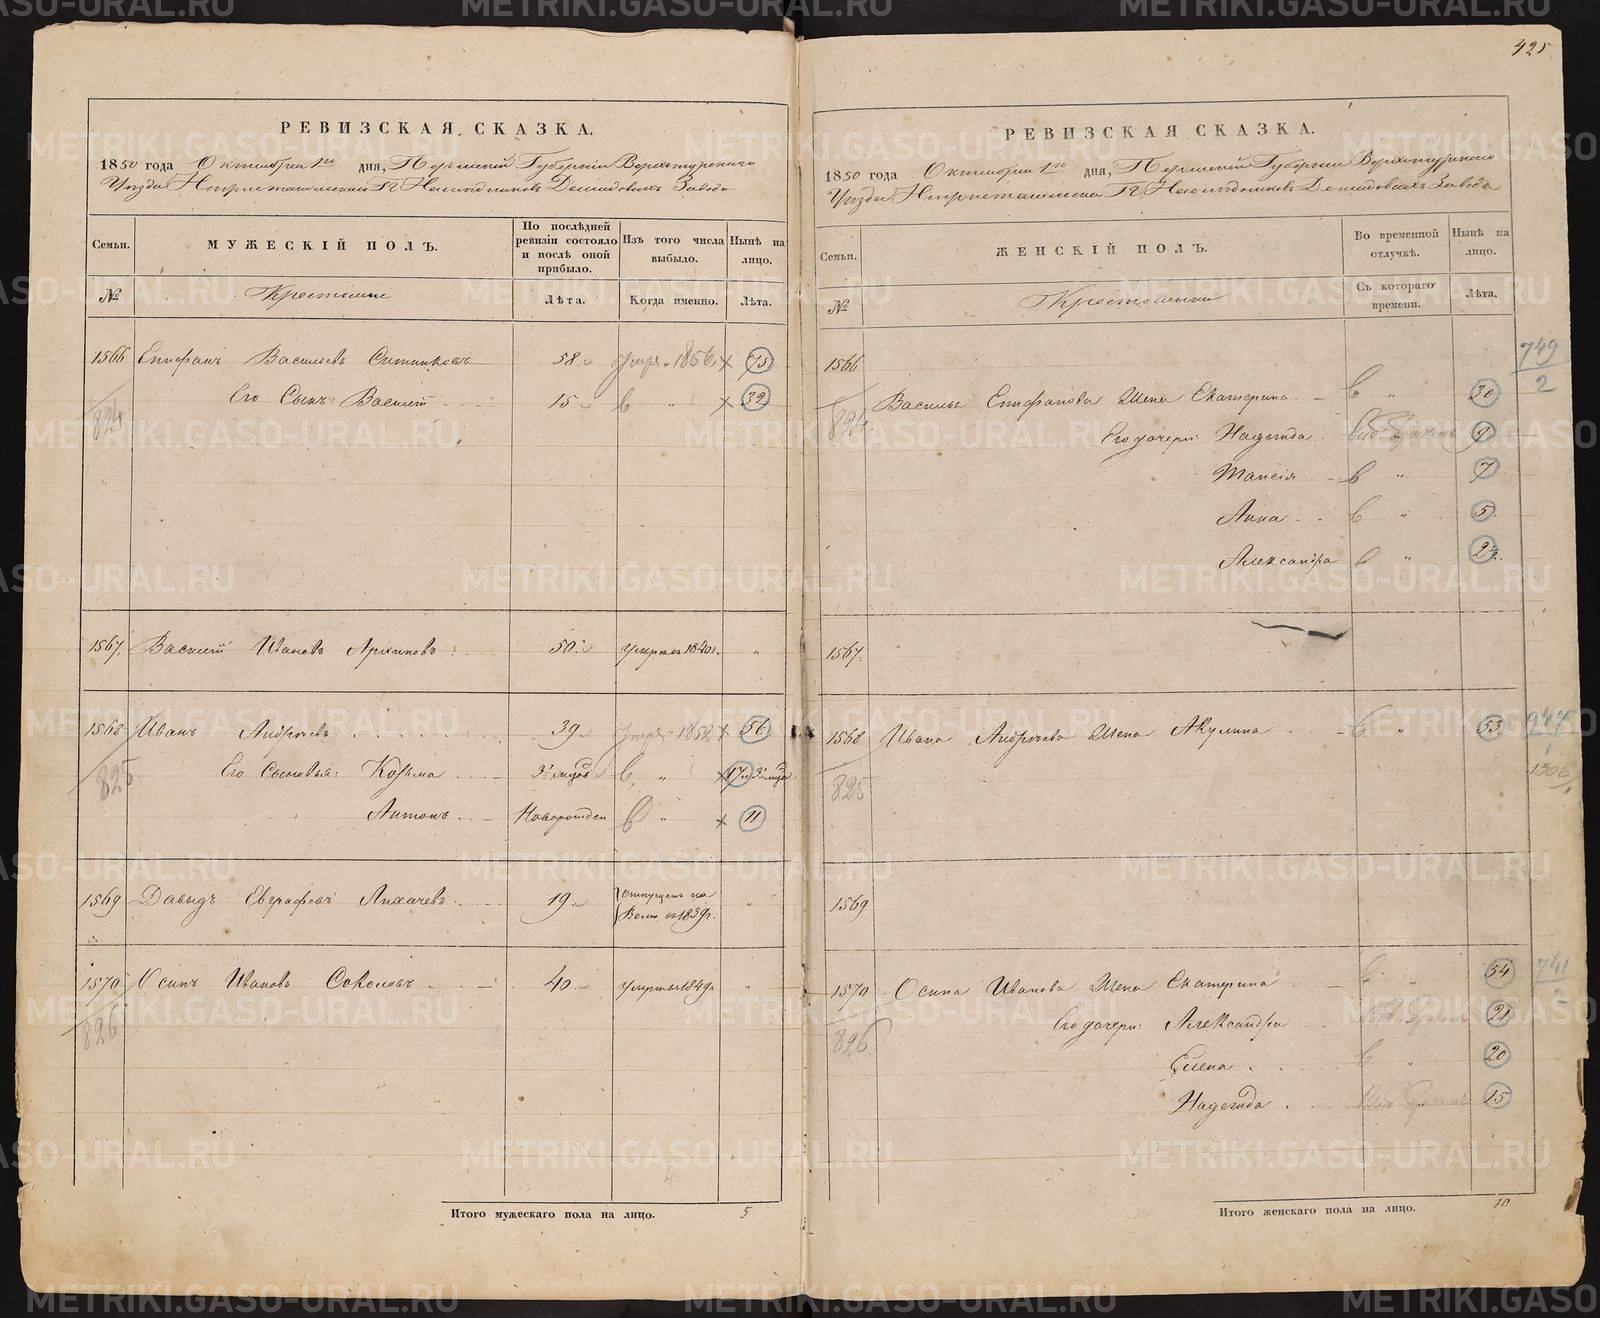 425
РЕВИЗСКАЯ СКАЗКА.
1850 года Октября 1го дня, Пермской Губерніи Верхотурскаго
Уѣзда Нижнетагильскаго Гг. Наслѣдниковъ Демидовыхъ Завода
Семьи. МУЖЕСКІЙ ПОЛЪ. По послѣдней ревизіи состояло и послѣ оной прибыло. Изъ того числа выбыло. Нынѣ на лицо.
№ Крестьяне Лѣта. Когда именно. Лѣта.
1566 Епифанъ Васильевъ 58 1856 75
824 Его Сынъ Василій 15 32
1567. Василій Ивановъ Архиповъ 50 умеръ 1840 г. "
1568 Иванъ Андреевъ 39 56
825 Его Сыновья: Козьма 3 мѣся 17
Антонъ Новорожден 11
1569 Давыдъ Евграфовъ Лихачевъ 19 отпущенъ на Волю въ 1839 г. "
1570 Осипъ Ивановъ Соколовъ 40 умеръ 1849 г. "
826
Итого мужескаго пола на лицо. 5
РЕВИЗСКАЯ СКАЗКА.
1850 года Октября 1го дня, Пермской Губерніи Верхотурскаго
Уѣзда Нижнетагильскаго Гг. Наслѣдниковъ Демидовыхъ Завода
Семьи. ЖЕНСКІЙ ПОЛЪ. Во временной отлучкѣ. Нынѣ на лицо.
№ Крестьянки Съ котораго времени. Лѣта.
749
2
1566
824 Василья Епифанова Жена Екатерина " 30
Его дочери: Надежда 9
Таисія " 7
Анна " 5
Александра " 2 1/2
1567.
1568 Ивана Андреева Жена Акулина " 53
825
1569
1570 Осипа Иванова Жена Екатерина " 54 741
826 Его дочери: Александра 21
Елена " 20
Надежда 15
Итого женскаго пола на лицо. 10
METRIKI.GASO-URAL.RU